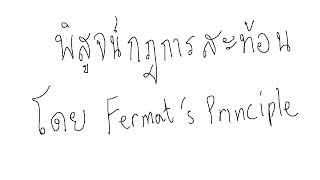 พิสูจน์กฎการสะท้อน
โดย Fermat's Principle